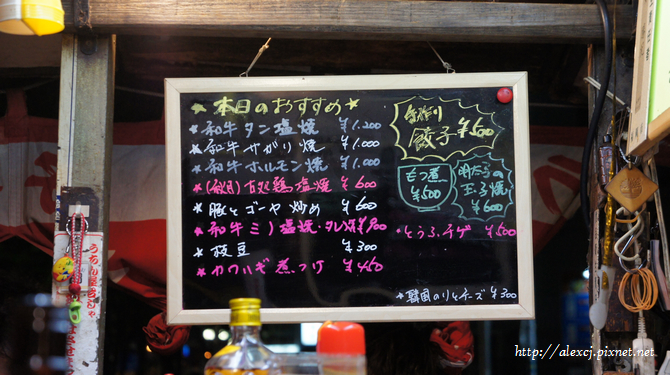 ★本日のおすすめ★
★和牛タン塩焼 ¥1.200
★和牛サガリ焼 ¥1.000
★和牛ホルモン焼 ¥1.000
地鶏塩焼 ¥600
★豚とゴーヤ炒め ¥600
★和牛ミノ塩焼・タレ焼¥800
★枝豆 ¥300
★カワハギ煮つけ ¥450
手作り
餃子¥500
もつ煮
¥500
明太子の
玉子焼
¥600
・とうふチゲ ¥500
★韓国のりとチーズ ¥300
http://alexcj.pixnet.net